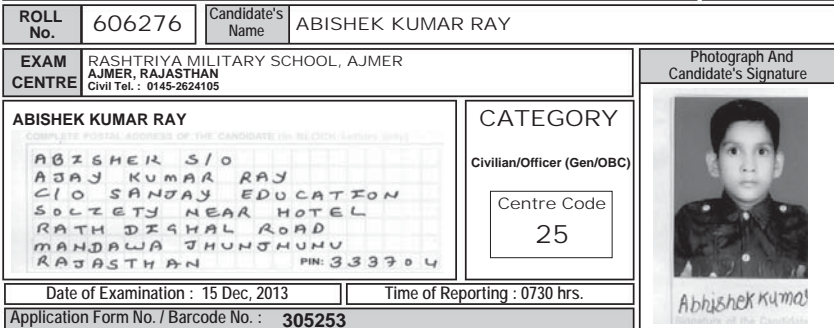 ROLL No. 606276 Candidate's Name ABISHEK KUMAR RAY
EXAM CENTRE RASHTRIYA MILITARY SCHOOL, AJMER
AJMER, RAJASTHAN
Civil Tel. : 0145-2624105
Photograph And Candidate's Signature
ABISHEK KUMAR RAY
COMPLETE POSTAL ADDRESS OF THE CANDIDATE (In BLOCK Letters only)
ABISHEK S/O
AJAY KUMAR RAY
C/O SANJAY EDUCATION
SOCIETY NEAR HOTEL
RATH DIGHAL ROAD
MANDAWA JHUNJHUNU
RAJASTHAN PIN: 333704
CATEGORY
Civilian/Officer (Gen/OBC)
Centre Code
25
Abhishek Kumar
Signature of the Candidate
Date of Examination : 15 Dec, 2013 Time of Reporting : 0730 hrs.
Application Form No. / Barcode No. : 305253